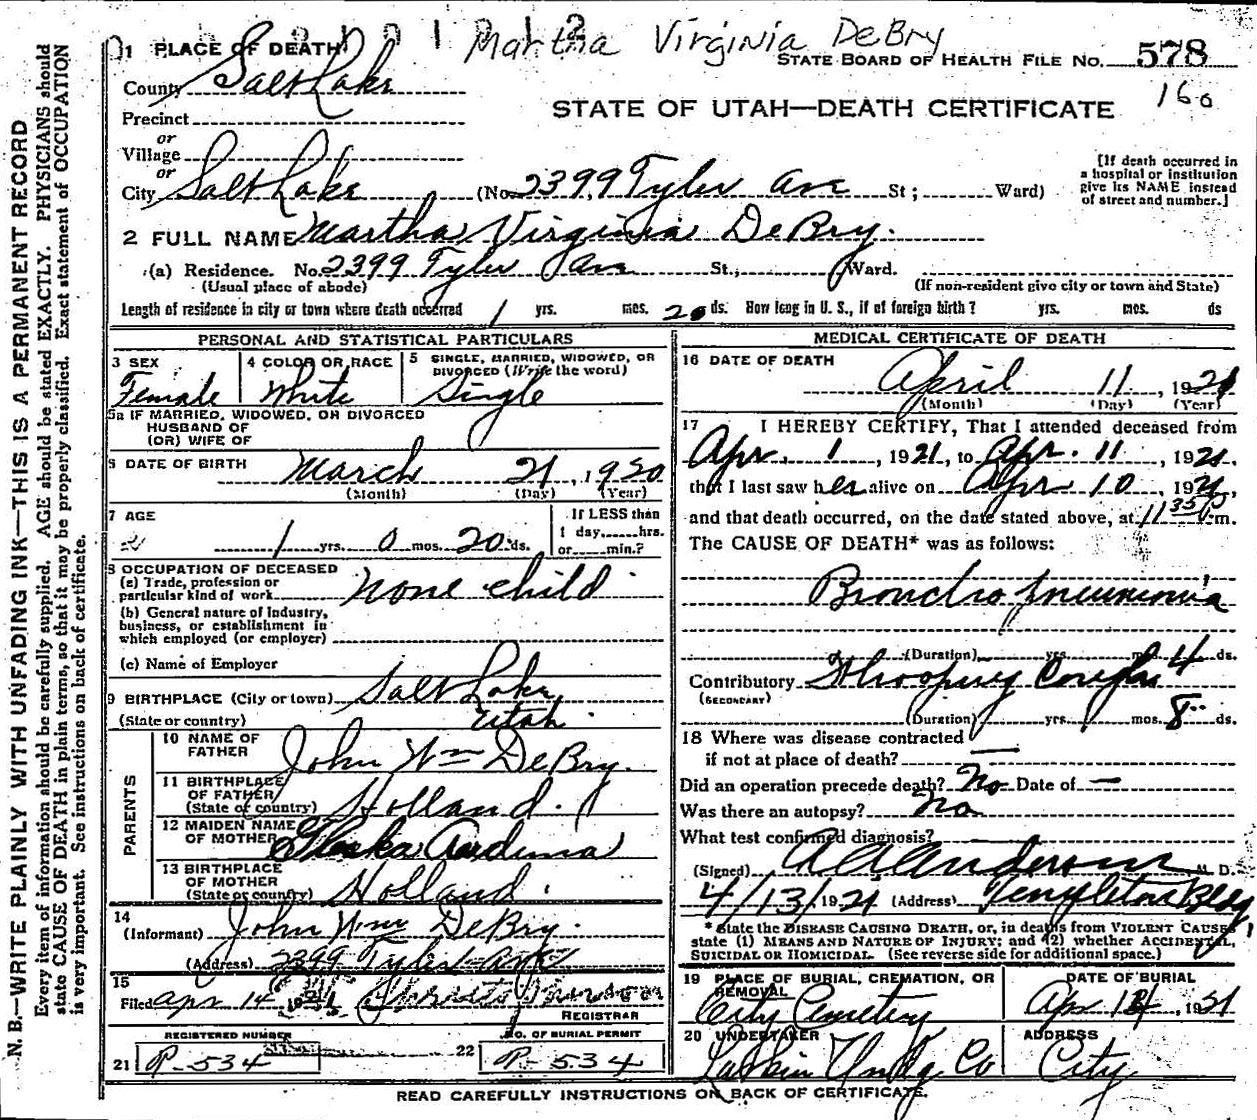 Martha Virginia DeBry
1 PLACE OF DEATH
STATE BOARD OF HEALTH FILE No. 578
County Salt Lake
160
STATE OF UTAH—DEATH CERTIFICATE
Precinct
or
Village
or
City Salt Lake (No. 2399 Tyler Ave St; Ward)
[If death occurred in a hospital or institution give its NAME instead of street and number.]
2 FULL NAME Martha Virginia DeBry.
(a) Residence. No. 2399 Tyler Ave St., Ward.
(Usual place of abode) (If non-resident give city or town and State)
Length of residence in city or town where death occurred 1 yrs. mos. 20 ds. How long in U. S., if of foreign birth? yrs. mos. ds
PERSONAL AND STATISTICAL PARTICULARS
3 SEX Female
4 COLOR OR RACE White
5 SINGLE, MARRIED, WIDOWED, OR DIVORCED (Write the word) Single
5a IF MARRIED, WIDOWED, OR DIVORCED
HUSBAND OF
(OR) WIFE OF
6 DATE OF BIRTH March 21, 1920
(Month) (Day) (Year)
7 AGE
1 yrs. 0 mos. 20 ds.
If LESS than
1 day, hrs.
or min.?
8 OCCUPATION OF DECEASED
(a) Trade, profession or
particular kind of work None child
(b) General nature of Industry,
business, or establishment in
which employed (or employer)
(c) Name of Employer
9 BIRTHPLACE (City or town) Salt Lake
(State or country) Utah.
PARENTS
10 NAME OF
FATHER John Wm DeBry.
11 BIRTHPLACE
OF FATHER
(State or country) Holland.
12 MAIDEN NAME
OF MOTHER
13 BIRTHPLACE
OF MOTHER
(State or country) Holland.
14
(Informant) John Wm DeBry.
(Address) 2399 Tyler Ave
15
Filed Apr 14 1921
REGISTRAR
REGISTERED NUMBER
21 P-534
NO. OF BURIAL PERMIT
22 P-534
MEDICAL CERTIFICATE OF DEATH
16 DATE OF DEATH
April 11, 1921
(Month) (Day) (Year)
17 I HEREBY CERTIFY, That I attended deceased from
Apr. 1, 1921, to Apr. 11, 1921.
that I last saw her alive on Apr 10, 1921,
and that death occurred, on the date stated above, at 11 35 P.m.
The CAUSE OF DEATH* was as follows:
Broncho pneumonia
(Duration) yrs. mos. 4 ds.
Contributory Whooping Cough
(SECONDARY)
(Duration) yrs. mos. 8 ds.
18 Where was disease contracted
if not at place of death? —
Did an operation precede death? No Date of —
Was there an autopsy? No
What test confirmed diagnosis?
(Signed) A A Anderson M. D.
4/13/1921 (Address) Templeton Bldg
* State the DISEASE CAUSING DEATH, or, in deaths from VIOLENT CAUSES,
state (1) MEANS AND NATURE OF INJURY; and (2) whether ACCIDENTAL,
SUICIDAL OR HOMICIDAL (See reverse side for additional space.)
19 PLACE OF BURIAL, CREMATION, OR REMOVAL
City Cemetery
DATE OF BURIAL
20 UNDERTAKER
Larkin Undtg Co
ADDRESS
City
READ CAREFULLY INSTRUCTIONS ON BACK OF CERTIFICATE.
N. B.—WRITE PLAINLY WITH UNFADING INK—THIS IS A PERMANENT RECORD
Every item of information should be carefully supplied. AGE should be stated EXACTLY. PHYSICIANS should
state CAUSE OF DEATH in plain terms, so that it may be properly classified. Exact statement of OCCUPATION
is very important. See instructions on back of certificate.